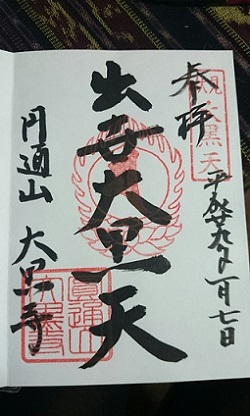 奉拝
平成廿九年一月七日
出世大黒天
円通山 大黒寺